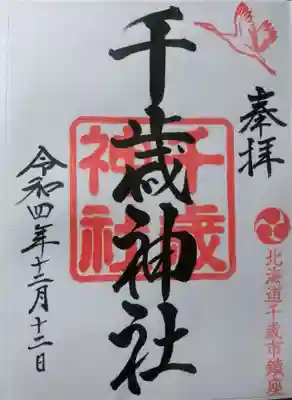 奉拝
北海道千歳市鎮座
千歳神社
千歳
神社
令和四年十二月十二日